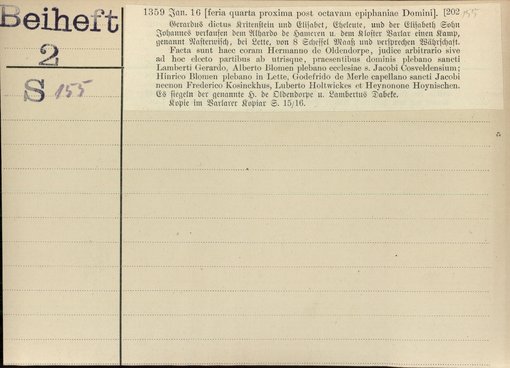 Beiheft
2
S 155
1359 Jan. 16 [feria quarta proxima post octavam epiphaniae Domini]. [202 155
Gerardus dictus Kritenstein und Elisabet, Eheleute, und der Elisabeth Sohn
Johannes verkaufen dem Alhardo de Hameren u. dem Kloster Varlar einen Kamp,
genannt Nasterwisch, bei Lette, von 8 Scheffel Maaß und versprechen Währschaft.
Facta sunt haec coram Hermanno de Oldendorpe, judice arbitrario sive
ad hoc electo partibus ab utrisque, praesentibus dominis plebano sancti
Lamberti Gerardo, Alberto Blomen plebano ecclesiae s. Jacobi Cosveldensium;
Hinrico Blomen plebano in Lette, Godefrido de Merle capellano sancti Jacobi
necnon Frederico Kosinckhus, Luberto Holtwickes et Heynonone Hoynischen.
Es siegeln der genannte H. de Oldendorpe u. Lambertus Dabeke.
Kopie im Varlarer Kopiar S. 15/16.